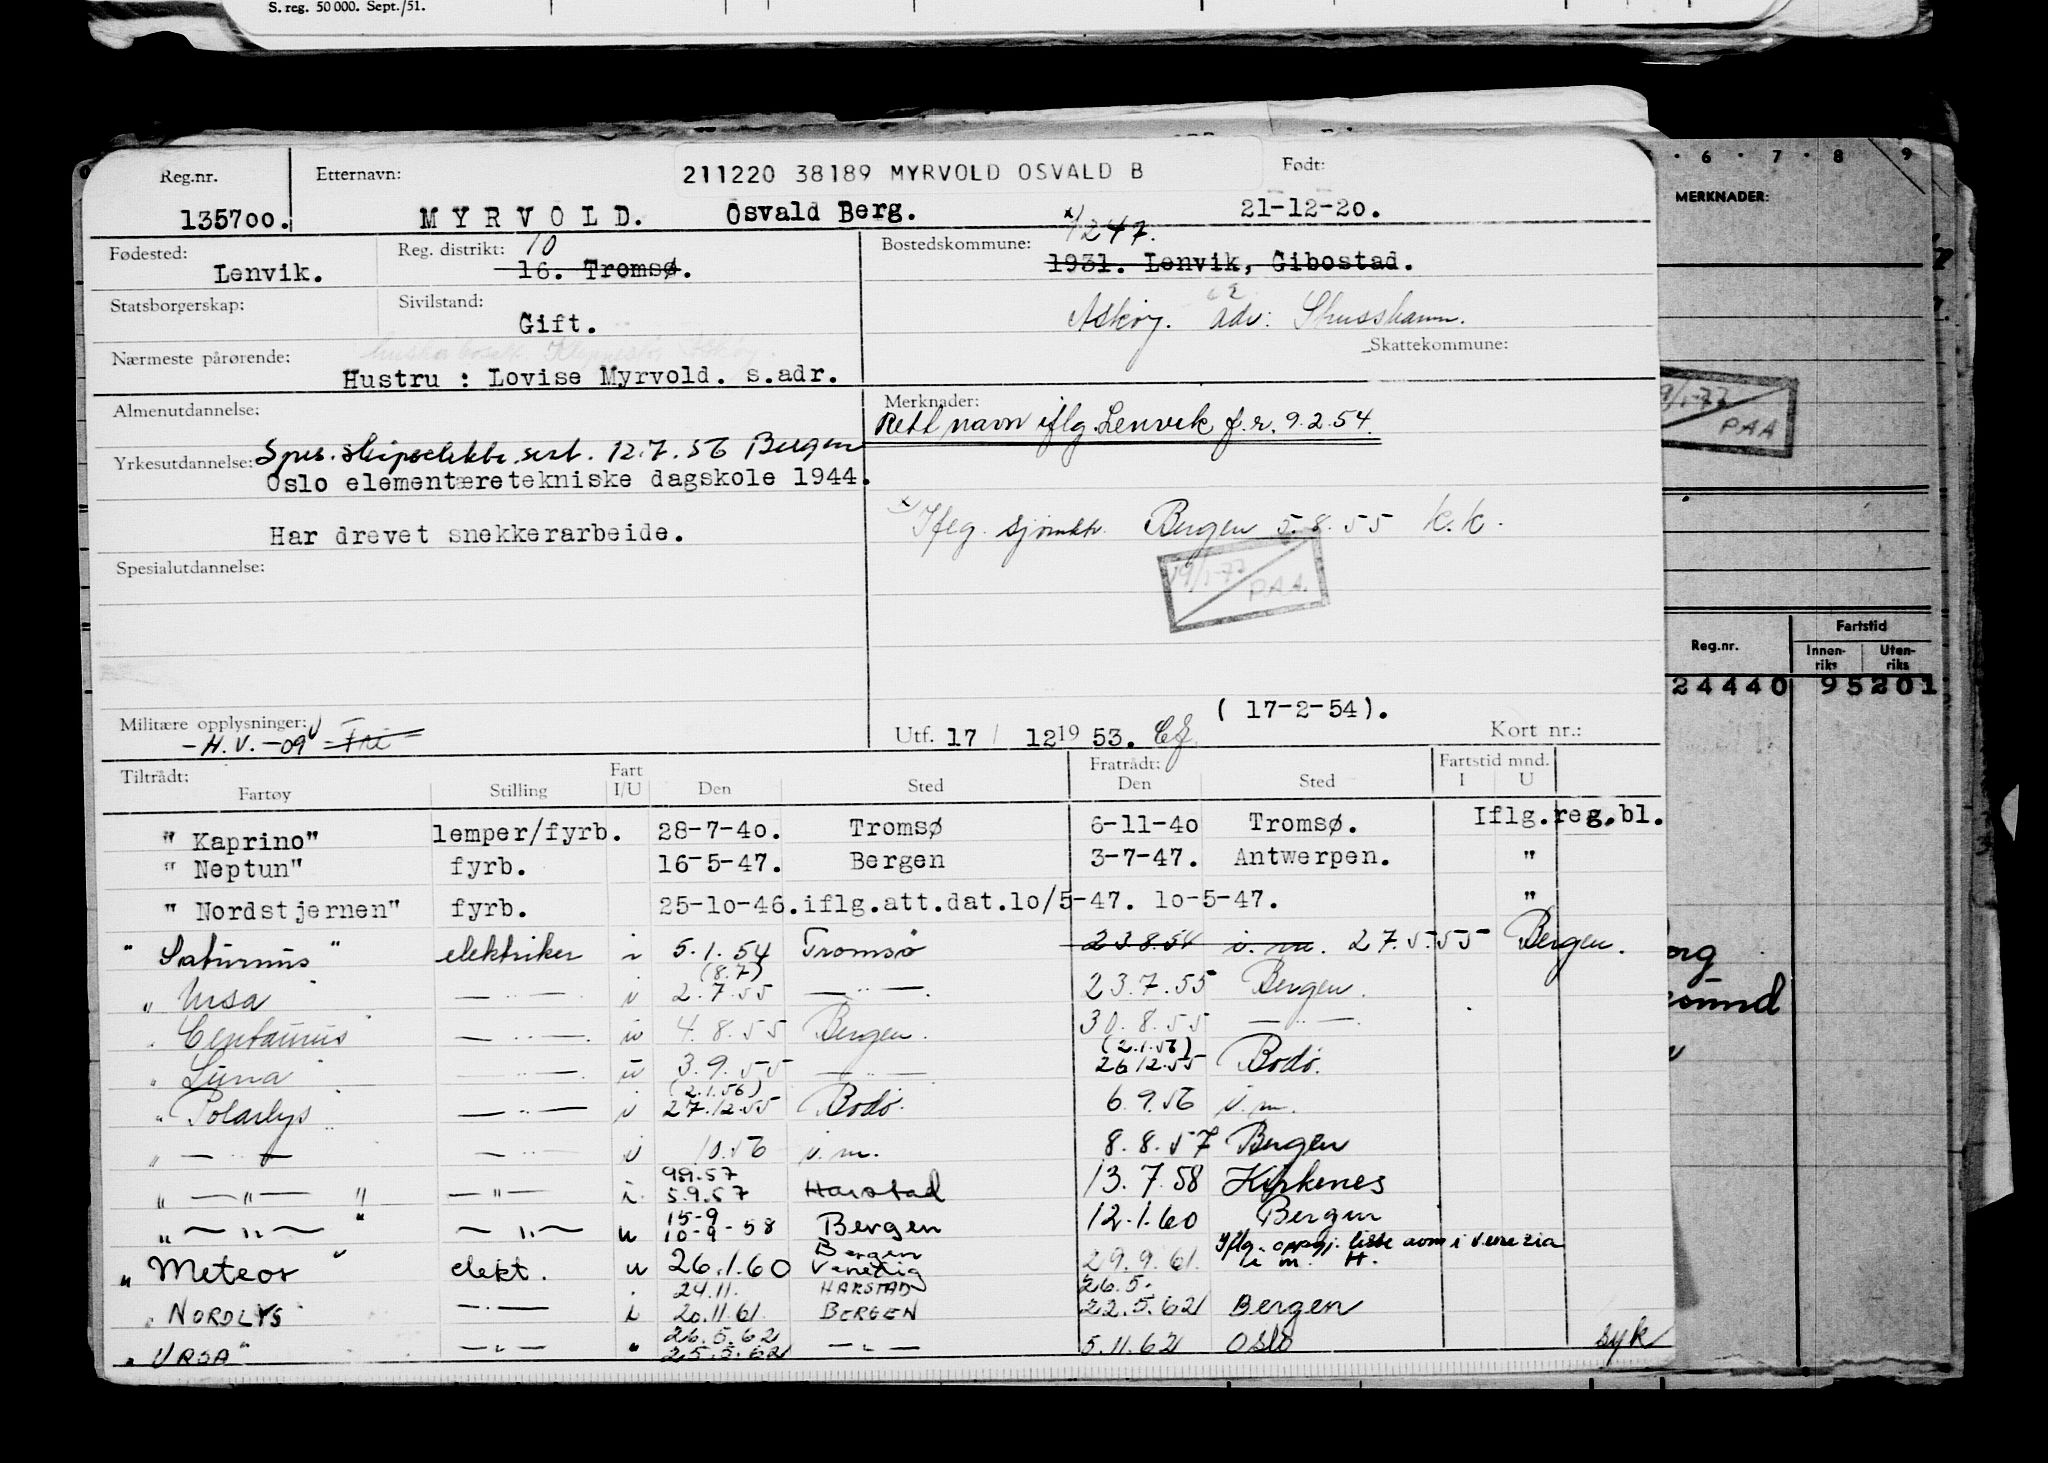 S. reg. 50 000. Sept./51.
Reg.nr.
Etternavn:
211220 38189 MYRVOLD OSVALD B
Født:
135700. MYRVOLD. Osvald Berg. 21-12-20.
Fødested: Lenvik.
Reg. distrikt: 10
16. Tromsø.
Bostedskommune: x) 1247.
1931. Lenvik, Gibostad.
Statsborgerskap:
Sivilstand: Gift.
Askøy. adr:
Skattekommune:
Nærmeste pårørende:
Hustru : Lovise Myrvold. s.adr.
Almenutdannelse:
Merknader:
Rett navn iflg. Lenvik f.r. 9.2.54.
Yrkesutdannelse: 12.7.56 Bergen
Oslo elementæretekniske dagskole 1944.
Har drevet snekkerarbeide.
x) Iflg. sjømktr. Bergen 5.8.55 K.K.
19/1-77
PAA.
Spesialutdannelse:
Militære opplysninger:
-H.V.-09 Fri
(17-2-54).
Utf. 17/ 12 19 53.
Kort nr.:
Tiltrådt:
Fartøy
Stilling
Fart I/U
Den
Sted
Fratrådt:
Den
Sted
Fartstid mnd.
I U
" Kaprino" lemper/fyrb. 28-7-40. Tromsø 6-11-40 Tromsø. Iflg.reg.bl.
" Neptun" fyrb. 16-5-47. Bergen 3-7-47. Antwerpen. "
" Nordstjernen" fyrb. 25-10-46.iflg.att.dat.lo/5-47. lo-5-47. "
" Saturnus " elektriker i 5.1.54 Tromsø 23.8.54 i.m. 27.5.55 Bergen.
(8.7)
" Ursa — " — i 2.7.55 — " — 23.7.55 Bergen.
" Centaurus — " — u 4.8.55 Bergen. 30.8.55 — " —
(2.1.56)
" Luna — " — u 3.9.55 — " — 26.12.55 Bodø.
(2.1.56)
" Polarlys — " — i 27.12.55 Bodø. 6.9.56 i.m.
" — " — — " — i 10.56 i.m. 8.8.57 Bergen
" — " — " — " — i 5.9.57 Harstad 13.7.58 Kirkenes
15-9
" — " — " — " — u 10-9-58 Bergen 12.1.60 Bergen
Bergen
Iflg. oppgj. liste avm i Venezia
" Meteor " elekt. u 26.1.60 Venedig 29.9.61 i m. H.
24.11. HARSTAD 26.5.
" NORDLYS — " — i 20.11.61 BERGEN 22.5.62 Bergen
26.5.62
" URSA" — " — " 25.5.62 — " — 5.11.62 Oslo syk
6 · 7 · 8 9
MERKNADER:
19/1-77
PAA
Reg.nr.
Fartstid
Innen-riks
Uten-riks
24440 95201